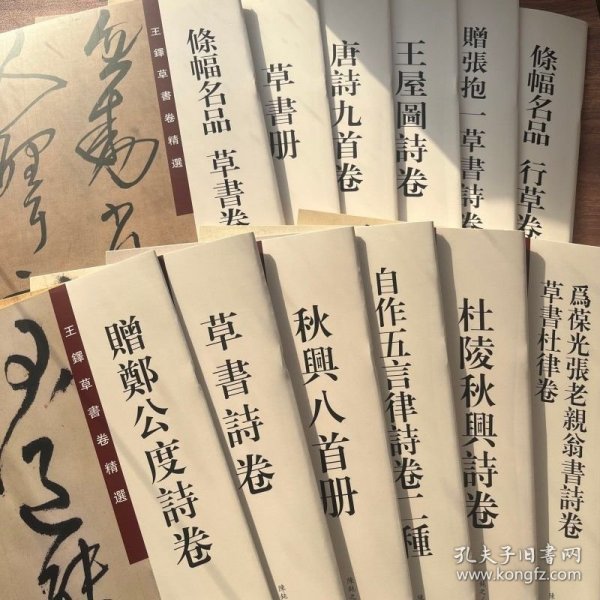 王鐸草書卷精選
條幅名品 草書卷
草書册
唐詩九首卷
王屋圖詩卷
贈張抱一草書詩卷
條幅名品 行草卷
王鐸草書卷精選
贈鄭公度詩卷
草書詩卷
秋興八首册
自作五言律詩卷二種
杜陵秋興詩卷
爲葆光張老親翁書詩卷
草書杜律卷
孔夫子旧书网
www.kongfz.com